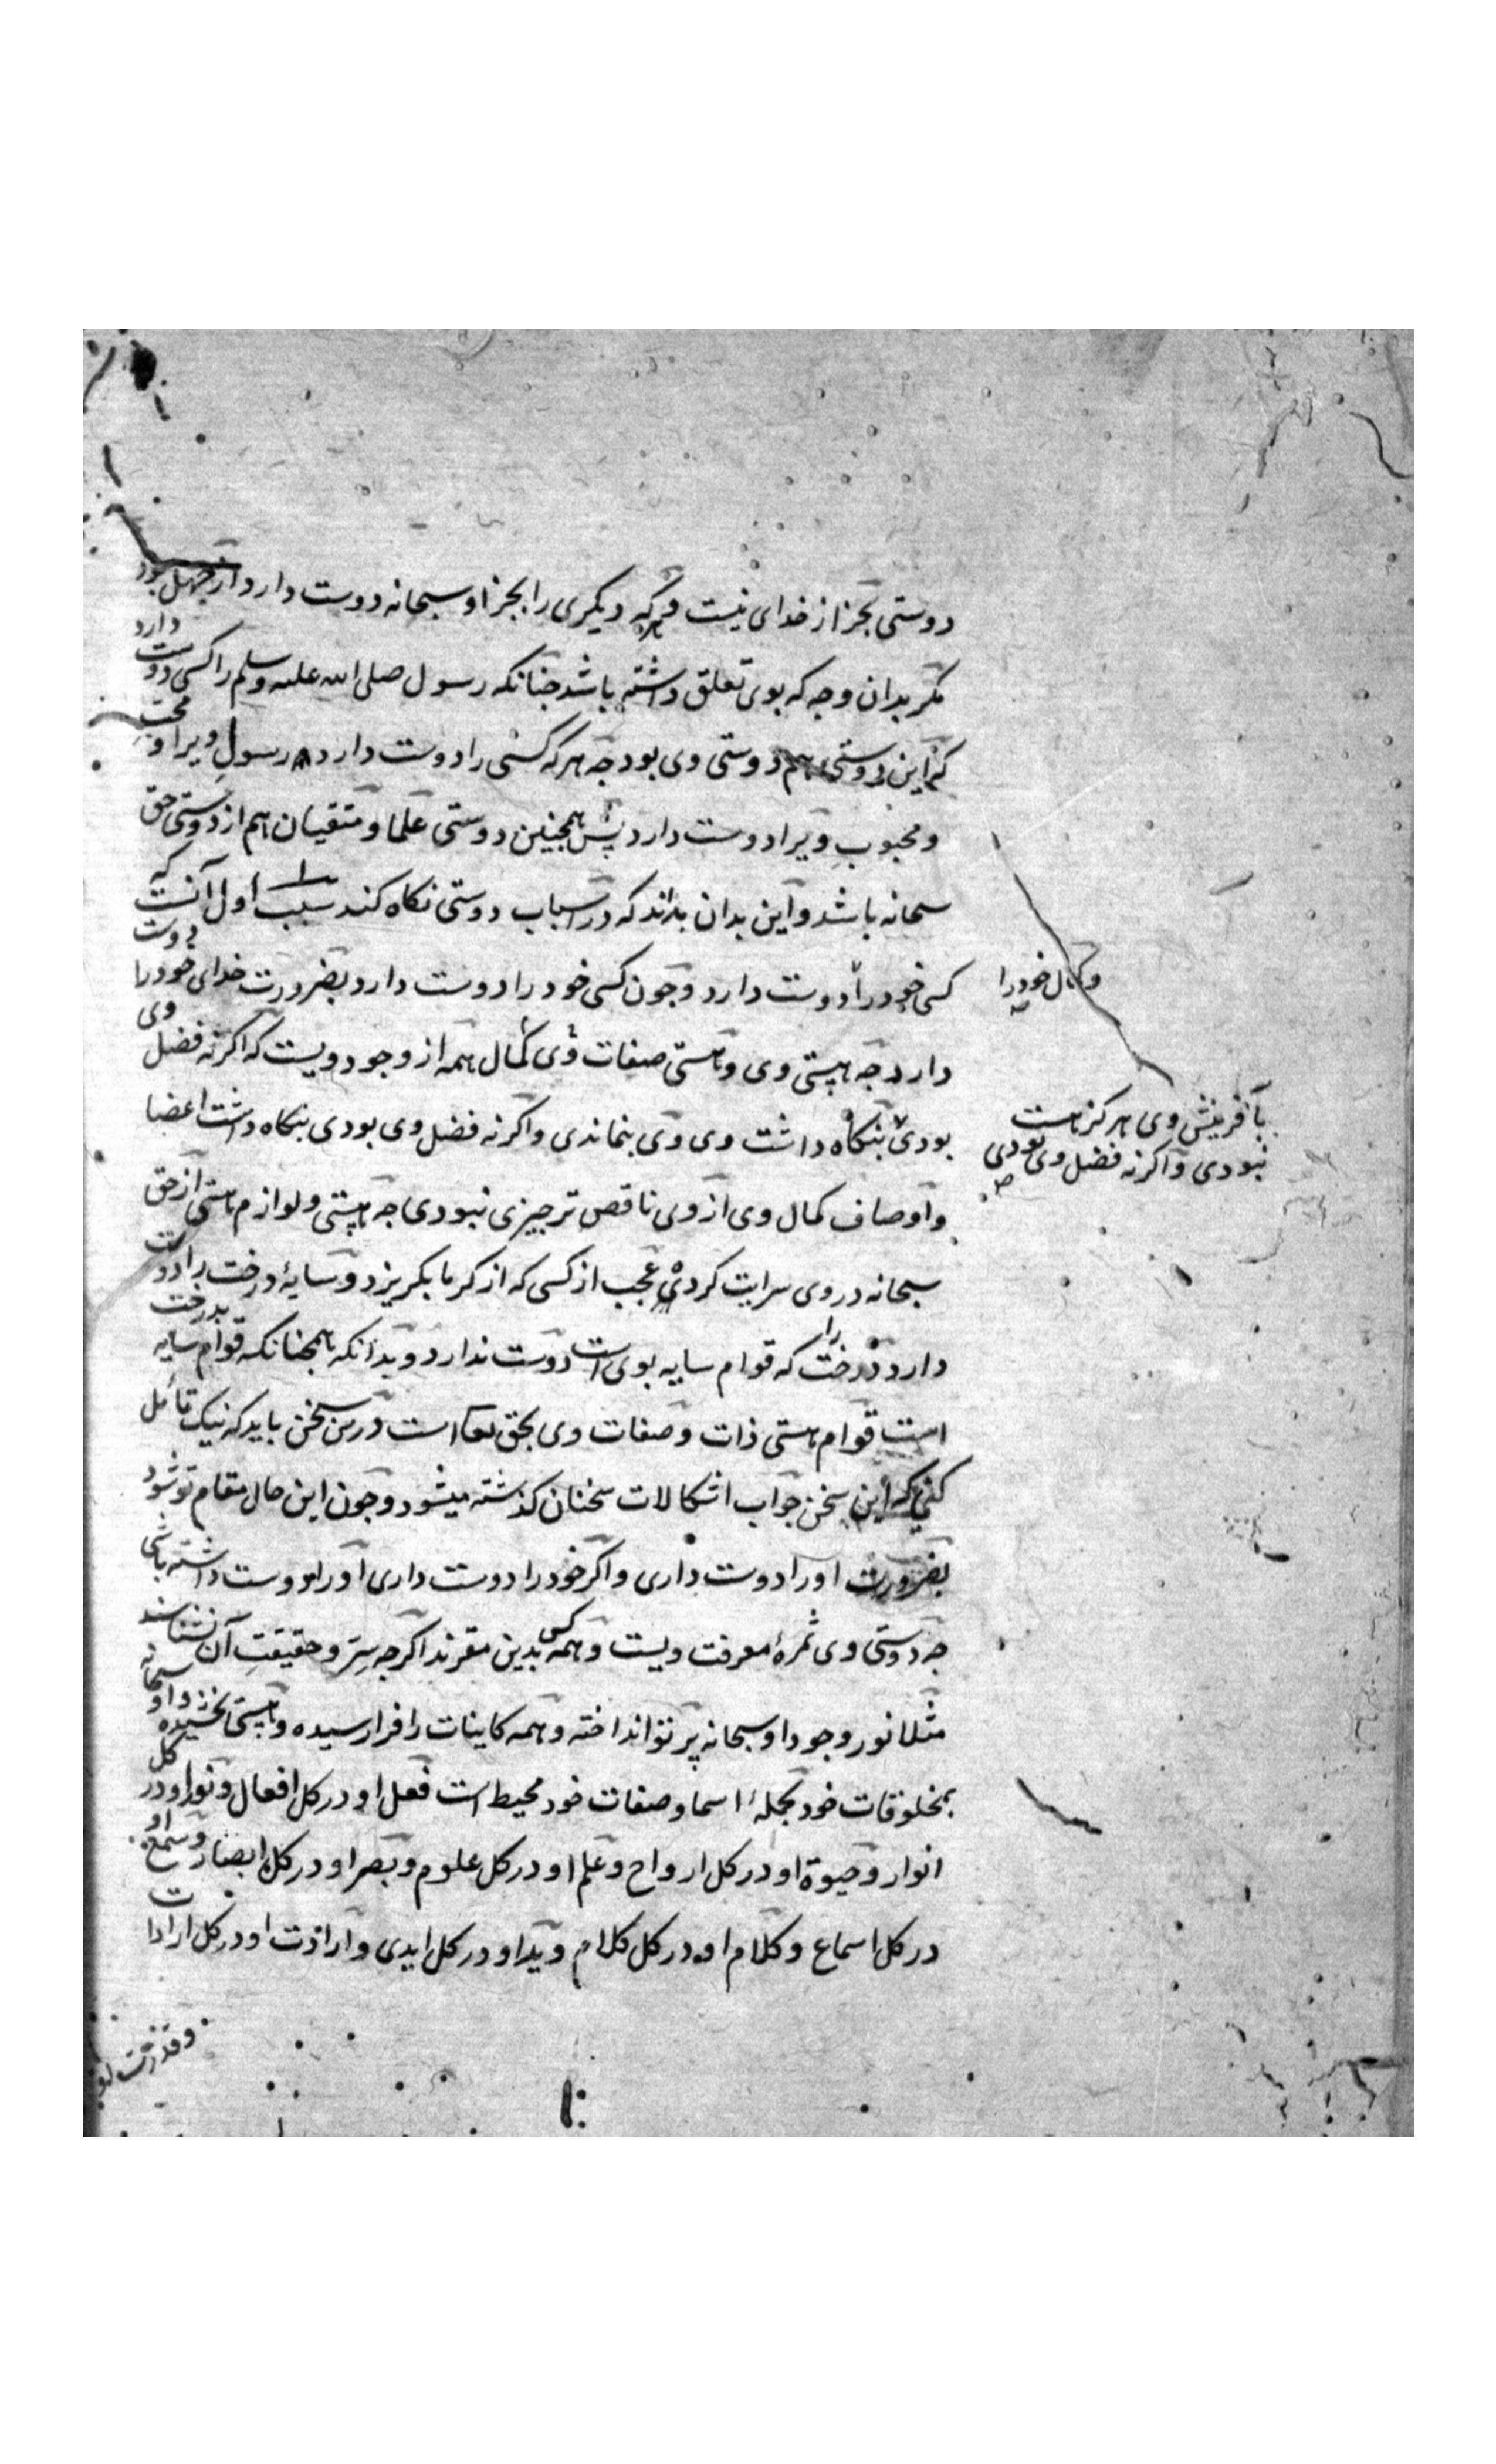 دوستی بجز از خدای نیست و هرکه دیکری را بجز او سبحانه دوست دارد از جهل بود
مکر بدان وجه که بوی تعلق داشته باشد جنانکه رسول صلی الله علیه وسلم را کسی دوست دارد
که این دوستی هم دوستی وی بود جه هرکه کسی را دوست دارد رسول ویرا و محب
ومحبوب ویرا دوست دارد پس همجنین دوستی علما و متقیان هم از دوستی حق
سبحانه باشد و این بدان بداند که در اسباب دوستی نکاه کند سبب اول آنست که
کسی خود را دوست دارد و جون کسی خود را دوست دارد بضرورت خدای خود را دوست
وکمال خود را
دارد جه هستی وی و هستی صفات وی کمال همه از وجود ویست که اکر نه فضل وی
بودی بنکاه داشت وی وی بنماندی و اکر نه فضل وی بودی بنکاه داشت اعضا
بآفرینش وی هرکز هست
نبودی و اکر نه فضل وی بودی
واوصاف کمال وی از وی ناقص تر جیزی نبودی جه هستی و لوازم هستی از حق
سبحانه در وی سرایت کردی عجب از کسی که از کرما بکریزد و سایهٔ درخت را دوست
دارد و درخت را که قوام سایه بوی است دوست ندارد و بدانکه همجنانکه قوام سایه بدرخت
است قوام هستی ذات و صفات وی بحق تعا است درین سخن باید که نیک تأمل
کنی که این سخن جواب اشکالات سخنان کذشته میشود و جون این حال مقام تو شود
بضرورت اورا دوست داری و اکر خود را دوست داری اورا دوست داشته باشی
جه دوستی وی ثمرهٔ معرفت ویست و همه کس بدین مقرند اکرجه سرّ و حقیقت آن نشناسند
مثلا نور وجود او سبحانه پرتو انداخته و همه کاینات را فرا رسیده و هستی بخشیده و او سبحانه
بمخلوقات خود بجملهٔ اسما و صفات خود محیط است فعل او در کل افعال و نور او در کل
انوار و حیوة او در کل ارواح و علم او در کل علوم و بصر او در کل ابصار و سمع او
در کل اسماع و کلام او در کل کلام و ید او در کل ایدی و ارادت او در کل ارادات
وقدرت